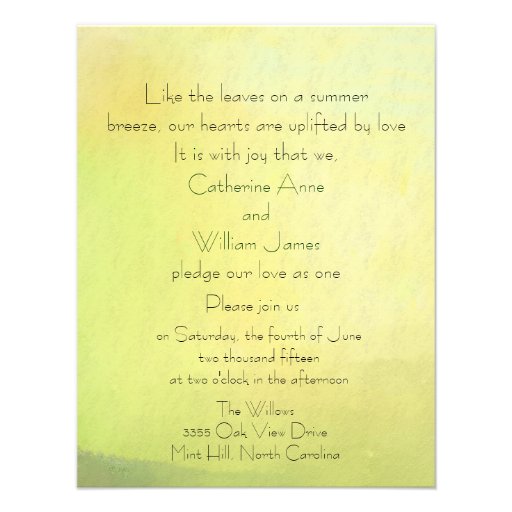 Like the leaves on a summer
breeze, our hearts are uplifted by love
It is with joy that we,
Catherine Anne
and
William James
pledge our love as one
Please join us
on Saturday, the fourth of June
two thousand fifteen
at two o'clock in the afternoon
The Willows
3355 Oak View Drive
Mint Hill, North Carolina